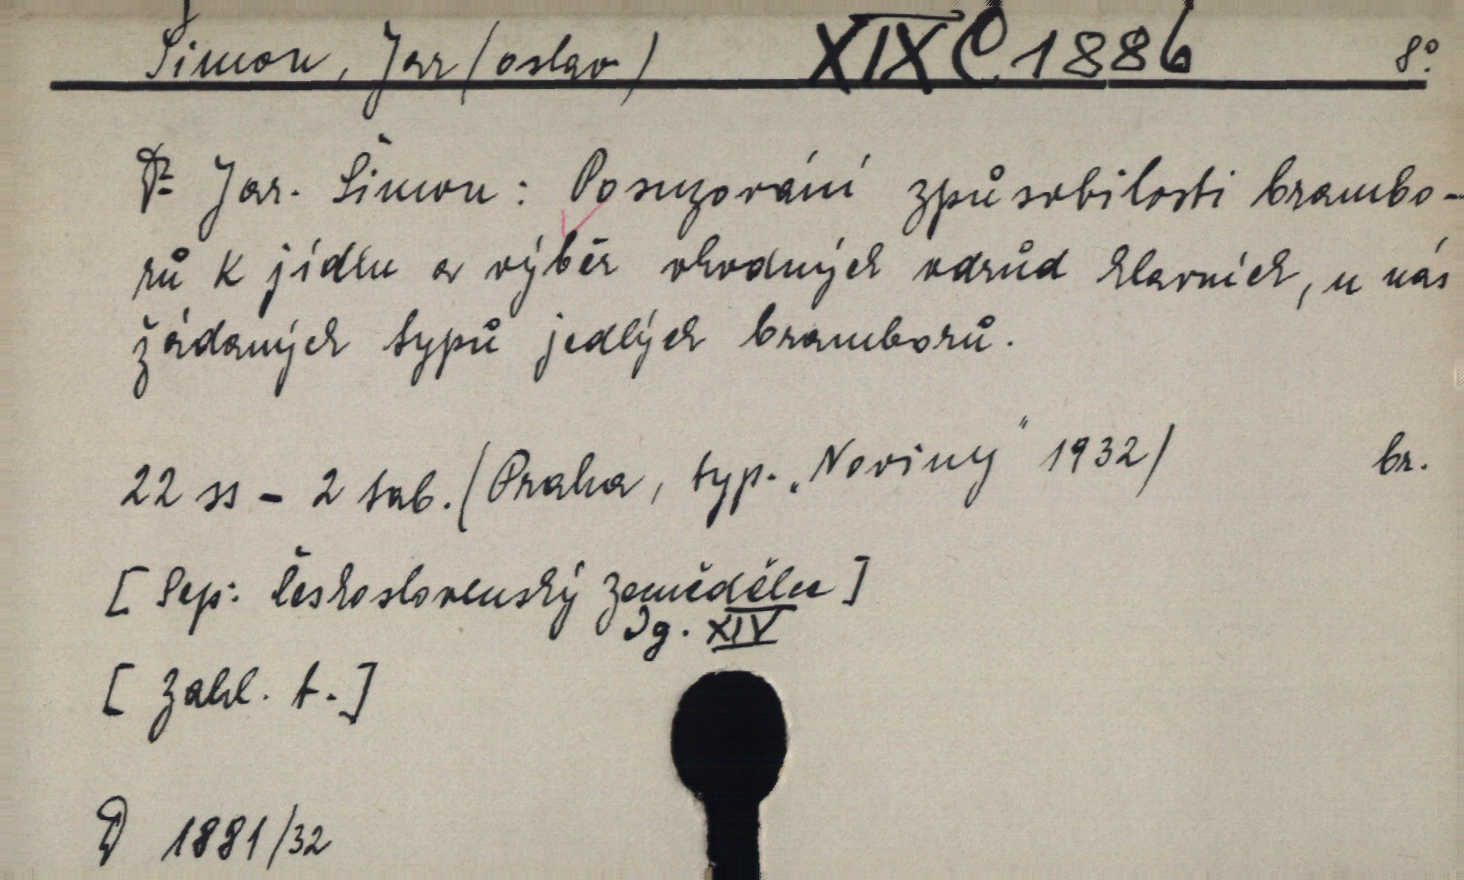 Šimon, Jar(oslav) XIX C 1886 8°.
Dr Jar. Šimon: Posuzování způsobilosti brambo-
rů k jídlu a výběr vhodných odrůd hlavních, u nás
žádaných typů jedlých bramborů.
22 ss - 2 tab. (Praha, typ. „Noviny" 1932) br.
[Sep: Československý Zemědělec]
Jg. XIV
[Záhl. t.]
D 1881/32